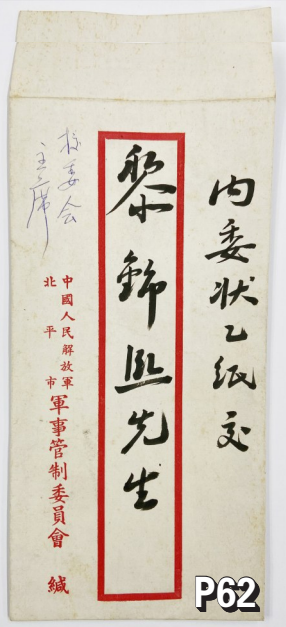 内委状乙纸交
黎錦熙先生
校委会
主席
中國人民解放軍
北平市
軍事管制委員會 緘
P62